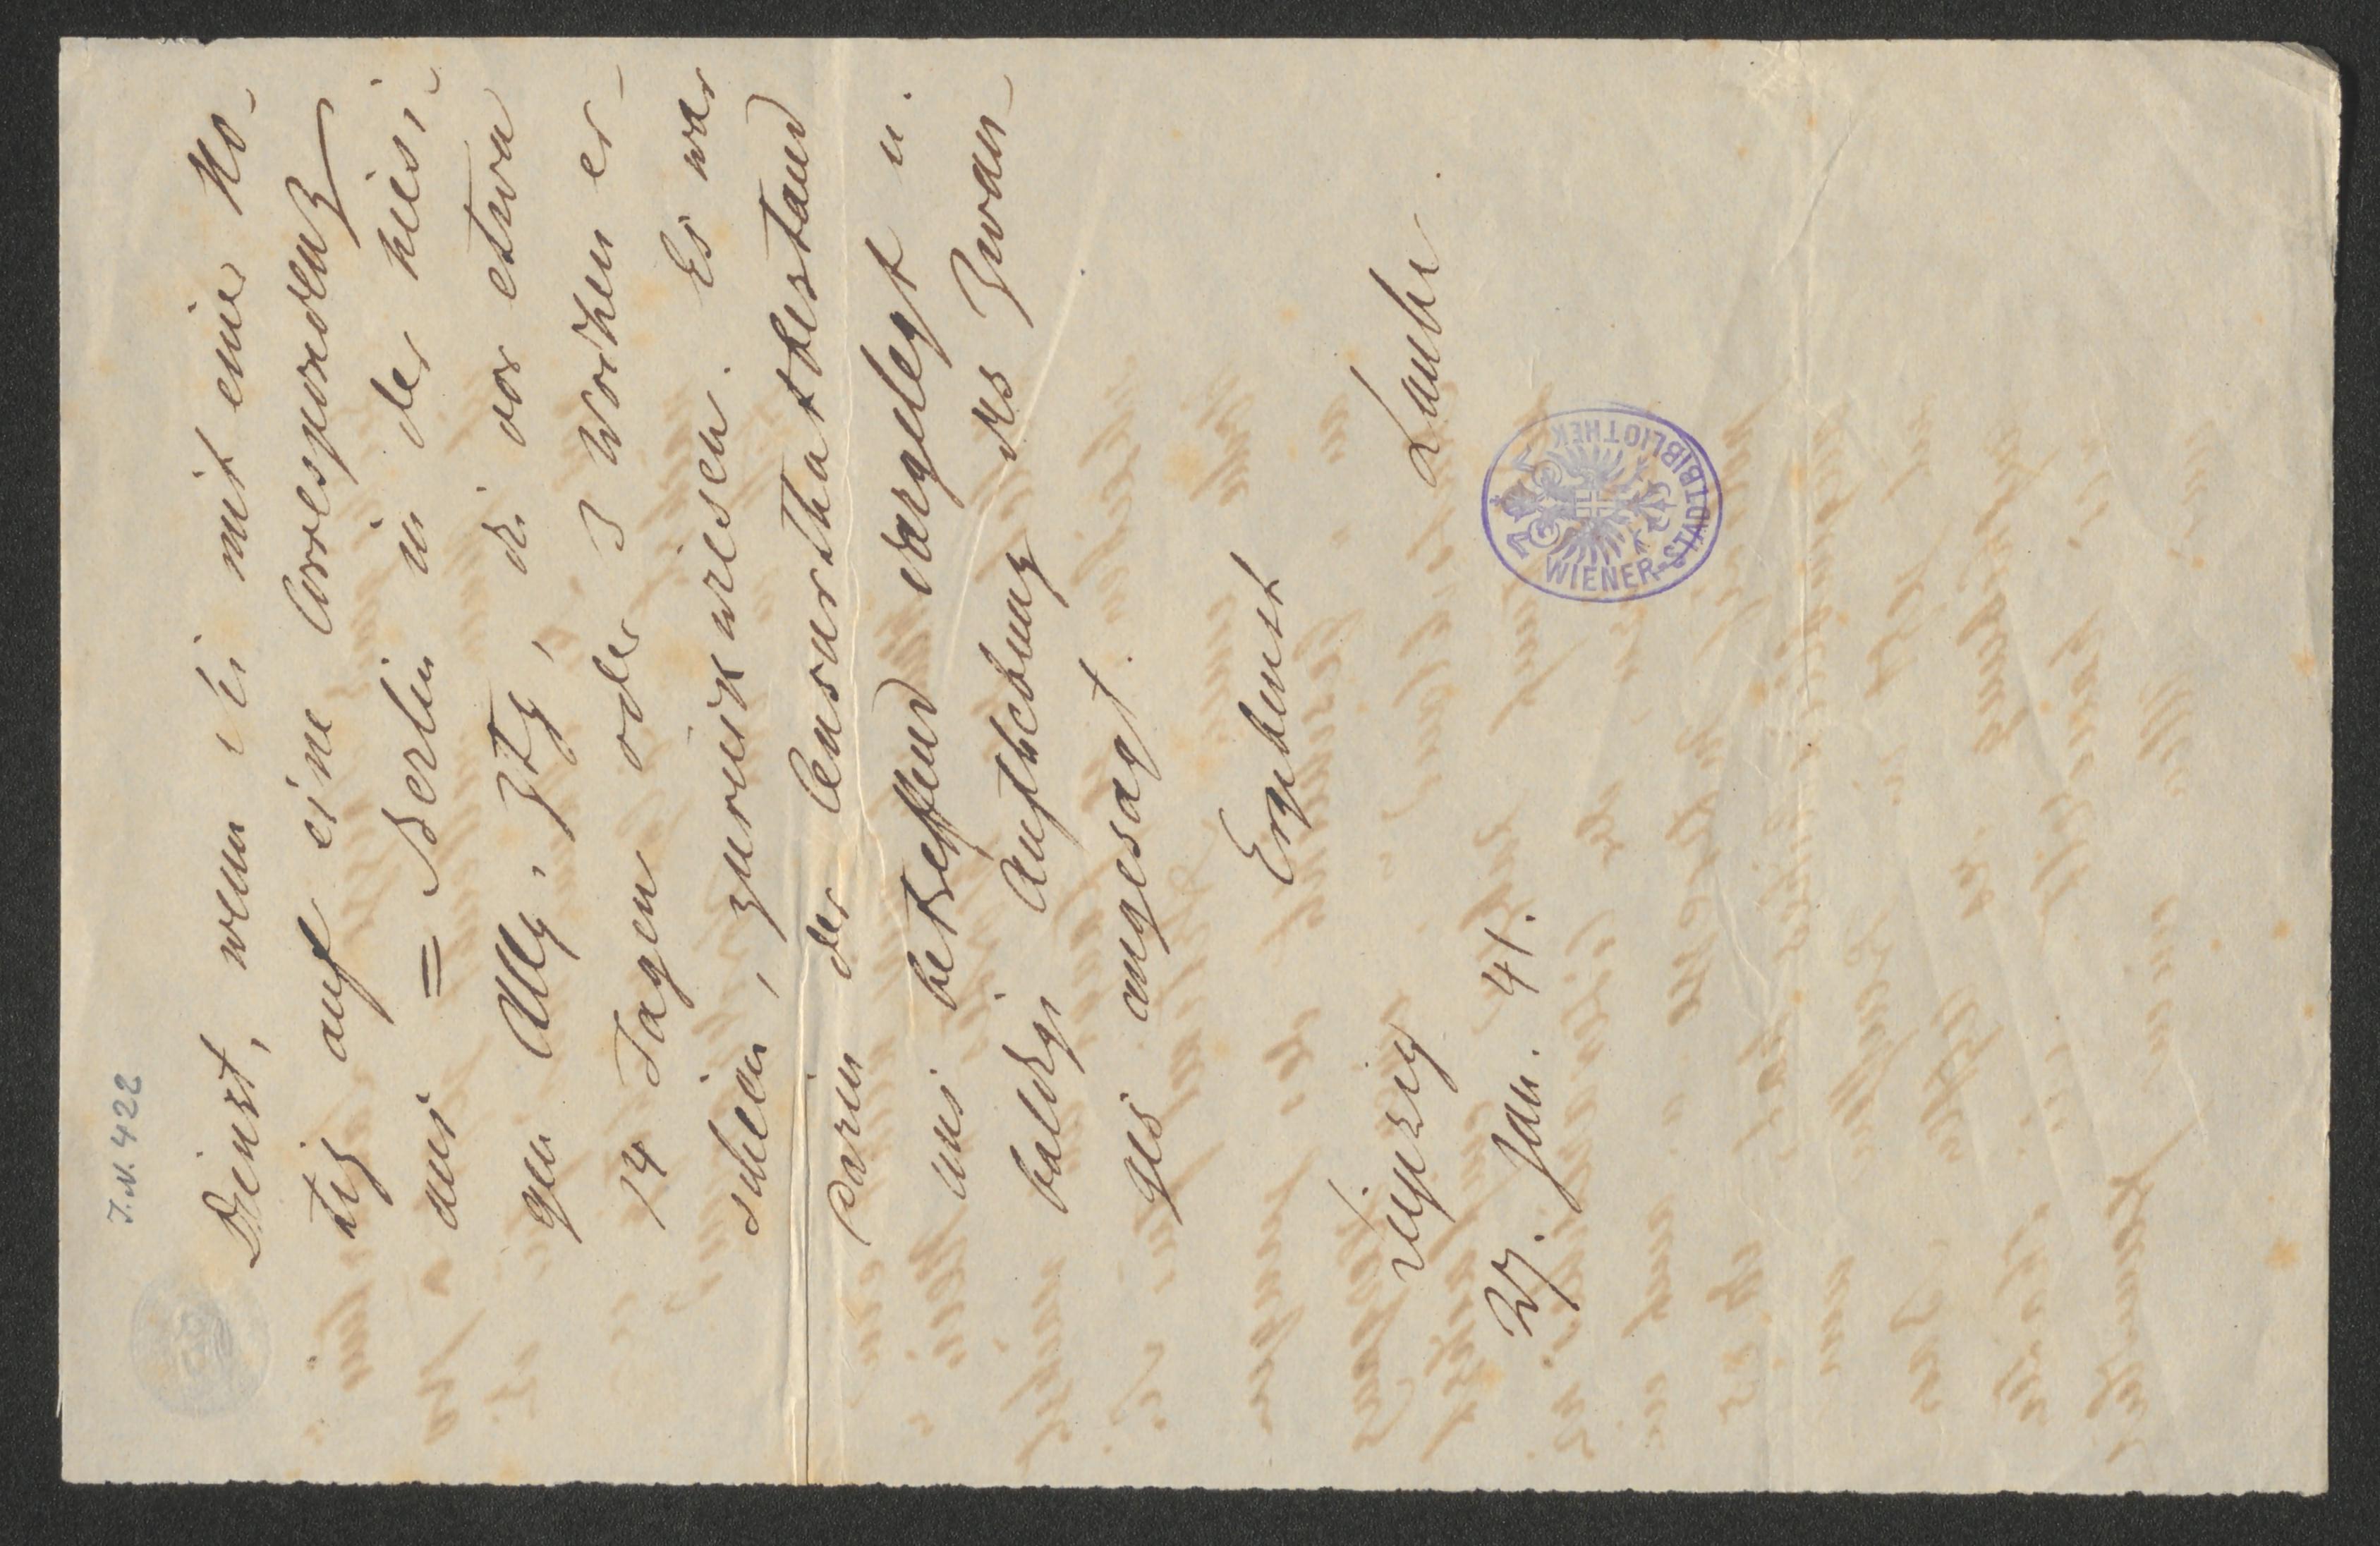 J.N. 422
Dienst, wenn Sie mit einer No-
tiz auf eine Correspondenz
aus = Berlin in der hiesi-
gen Allg. Ztg, die vor etwa
14 Tagen oder 3 Wochen er-
schien, zurückwiesen. Es war
darin der Censurthatbestand
uns betreffend dargelegt u.
baldige Aufhebung des Zwan-
ges angesagt.
Ergebenst
Laube.
Leipzig
27. Jan. 41.
WIENER STADTBIBLIOTHEK